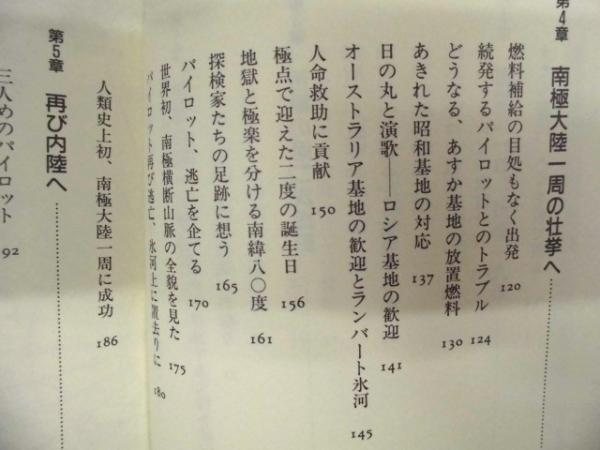 第4章 南極大陸一周の壮挙へ
燃料補給の目処もなく出発 120
続発するパイロットとのトラブル 124
どうなる、あすか基地の放置燃料 130
あきれた昭和基地の対応 137
日の丸と演歌――ロシア基地の歓迎 141
オーストラリア基地の歓迎とランバート氷河 145
人命救助に貢献 150
極点で迎えた二度の誕生日 156
地獄と極楽を分ける南緯八〇度 161
探検家たちの足跡に想う 165
パイロット、逃亡を企てる 170
世界初、南極横断山脈の全貌を見た 175
パイロット再び逃亡、氷河上に置去りに 180
人類史上初、南極大陸一周に成功 186
第5章 再び内陸へ
三人めのパイロット 92